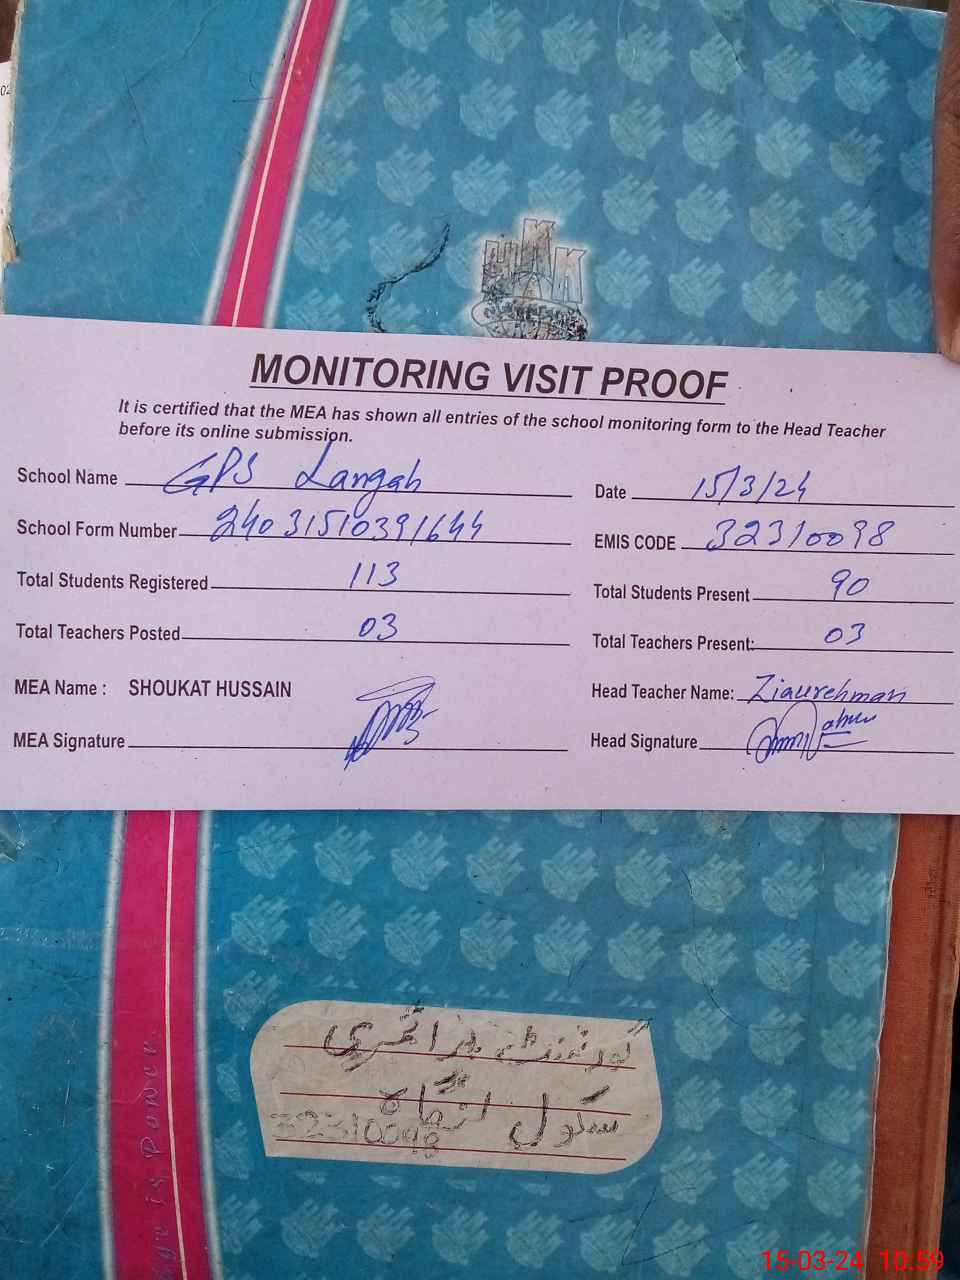 02
MONITORING VISIT PROOF
It is certified that the MEA has shown all entries of the school monitoring form to the Head Teacher
before its online submission.
School Name GPS Langah
Date 15/3/24
School Form Number 24031510391644
EMIS CODE 32310098
Total Students Registered 113
Total Students Present 90
Total Teachers Posted 03
Total Teachers Present: 03
MEA Name : SHOUKAT HUSSAIN
Head Teacher Name: Ziaurehman
MEA Signature
Head Signature
گورنمنٹ پرائمری
سکول لنگاہ
32310098
is Power
15-03-24 10:59